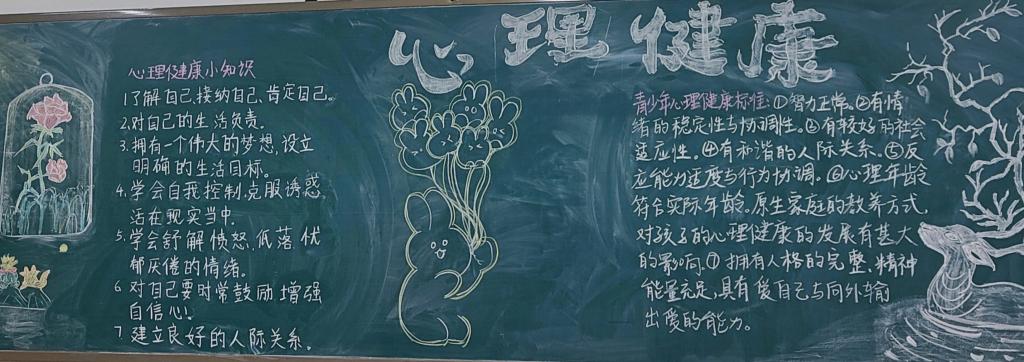 心理健康
心理健康小知识
1了解自己,接纳自己,肯定自己。
2.对自己的生活负责。
3.拥有一个伟大的梦想,设立
明确的生活目标。
4.学会自我控制,克服诱惑。
活在现实当中.
5.学会舒解愤怒,低落,忧
郁厌倦的情绪。
6 对自己要时常鼓励,增强
自信心。
7.建立良好的人际关系。
青少年心理健康标准:①智力正常。②有情
绪的稳定性与协调性。③有较好的社会
适应性。④有和谐的人际关系。⑤反
应能力适度与行为协调。⑥心理年龄
符合实际年龄。原生家庭的教养方式,
对孩子的心理健康的发展有甚大
的影响。⑦拥有人格的完整,精神
能量充足,具有爱自己与向外输
出爱的能力。